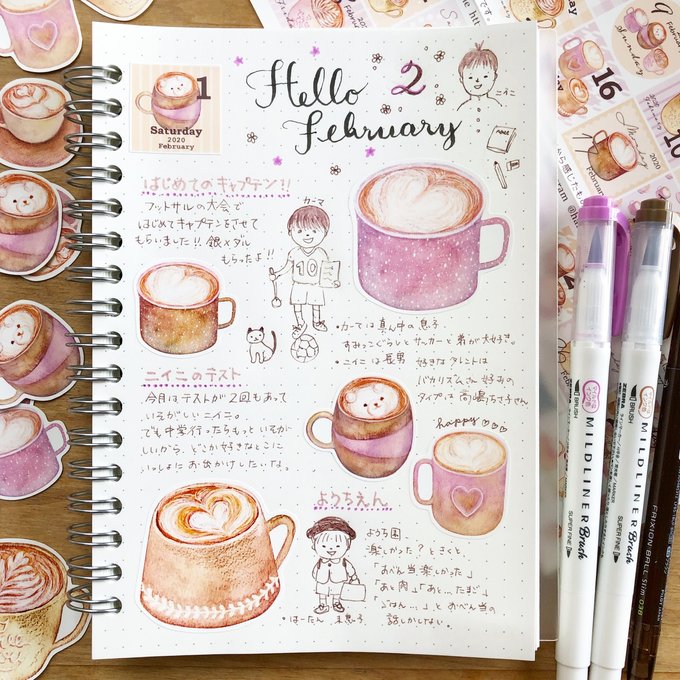 1
Saturday
2020
February
Hello 2
February
はじめてのキャプテン!!
フットサルの大会で
はじめてキャプテンをさせて
もらいました!! 銀メダル
もらったよ!!
カーマ
10
NOTE
・カーマは真ん中の息子
すみっこぐらしとサッカーと弟が大好き。
・ニイニは長男 好きなタレントは
バカリズムさん 好みの
タイプは高嶋ちさ子さん
ニイニのテスト
今月はテストが2回もあって
いそがしいニイニ。
でも中学行ったらもっといそが
しいから、どこか好きなとこに
いっしょにお出かけしたいな。
happy
ようちえん
ようち園
楽しかった?ときくと、
「おべん当楽しかった」
「あと肉」「あと…たまご」
「ごはん…」とおべん当の
話しかしない。
・ほーたん 末息子
9
February
Sunday
16
Monday
2020
February
10
BRUSH
ZEBRA
MILDLINER Brush
SUPER FINE
BRUSH
ZEBRA
MILDLINER Brush
SUPER FINE
FRIXION BALL Slim 038